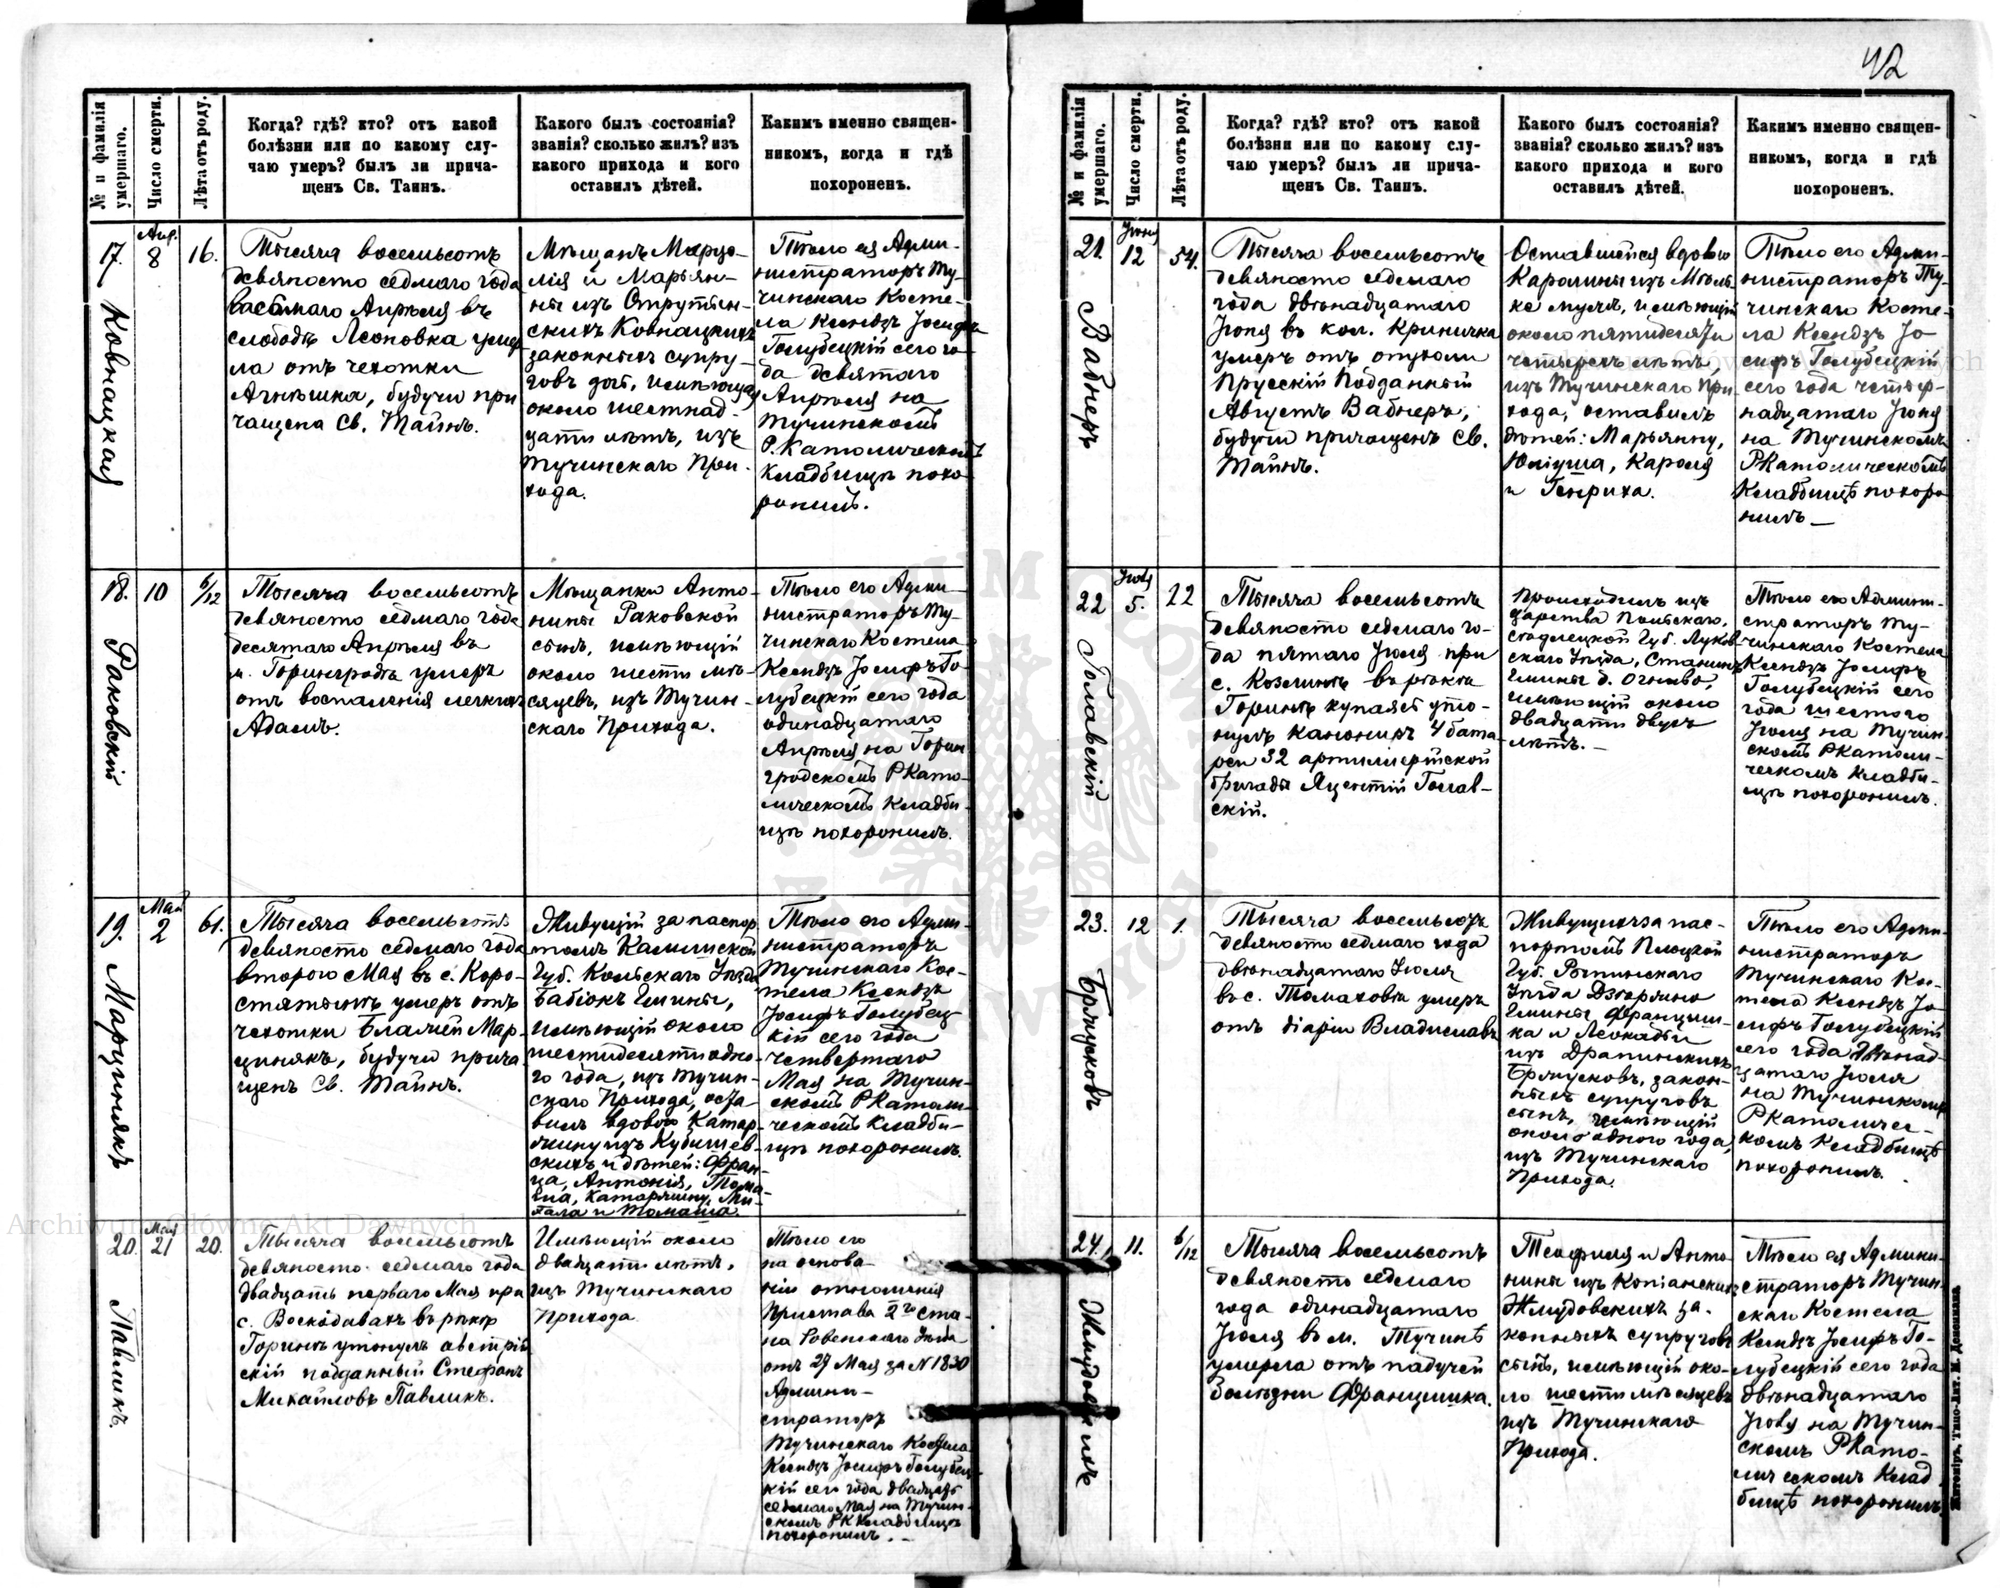 42
№ и фамилія умершаго.
Число смерти.
Лѣта отъ роду.
Когда? гдѣ? кто? отъ какой
болѣзни или по какому слу-
чаю умеръ? былъ ли прича-
щенъ Св. Таинъ.
Какого былъ состоянія?
званія? сколько жилъ? изъ
какого прихода и кого
оставилъ дѣтей.
Какимъ именно священ-
никомъ, когда и гдѣ
похороненъ.
17.
Ковнацкая
Апр.
8
16.
Тысяча восемьсотъ
девяносто седмаго года
восьмаго Апрѣля въ
слободѣ Леоновка умер
ла отъ чехотки
Агнѣшка, будучи при
чащена Св. Тайнъ.
Мѣщанъ Марцо-
лія и Марьян-
ны изъ
Ковнацкихъ
законныхъ супру-
говъ доч, имѣющая
около шестнад-
цати лѣтъ, изъ
Тучинскаго При-
хода.
Тѣло ея Адми-
нистраторъ Ту-
чинскаго Косте-
ла Ксендзъ Іосифъ
Голубецкій сего го-
да девятого
Апрѣля на
Тучинскомъ
Р. Католическомъ
Кладбищѣ похо-
ронилъ.
18.
Раковскій
10
6/12
Тысяча восемьсотъ
девяносто седмаго года
десятаго Апрѣля въ
м. Горинградѣ умеръ
отъ воспаленія легкихъ
Адамъ.
Мѣщанки Анто-
нины Раковской
сынъ, имѣющій
около шести мѣ-
сяцевъ, изъ Тучин-
скаго Прихода.
Тѣло его Адми-
нистраторъ Ту-
чинскаго Костела
Ксендзъ Іосифъ Го-
лубецкій сего года
одинадцатаго
Апрѣля на Горин
градскомъ РКато-
лическомъ Кладби-
щѣ похоронилъ.
19.
Марциняк
Май
2
61.
Тысяча восемьсотъ
девяносто седмаго года
второго Мая въ с. Коро-
стятынѣ умеръ отъ
чехотки Блажей Мар-
цинякъ, будучи прича
щенъ Св. Тайнъ.
Живущій за паспор
томъ Калишской
Губ. Кольскаго Уѣзда
Бабіокъ Гмины,
имѣющій около
шестидесяти одно-
го года, изъ Тучин-
скаго Прихода, оста
вилъ вдовою Катар-
жину изъ Кубишев-
скихъ и дѣтей: Фран-
ца, Антонія,
Катаржину, Ми-
хала и Томаша.
Тѣло его Адми-
нистраторъ
Тучинскаго Кос-
тела Ксендзъ
Іосифъ Голубец-
кій сего года
четвертаго
Мая на Тучин-
скомъ РКатоли-
ческомъ Кладби-
щѣ похоронилъ.
20.
Павликъ.
Мая
21
20.
Тысяча восемьсотъ
девяносто седмаго года
двадцать перваго Мая при
с. Воскодавахъ въ рѣкѣ
Горинѣ утонулъ австрій
скій подданный Стефанъ
Михайловъ Павликъ.
Имѣющій около
двадцати лѣтъ,
изъ Тучинскаго
Прихода.
Тѣло его
на основа-
ніи отношенія
Пристава 2го ста-
на Ровенскаго Уѣзда
отъ 27 Мая за N 1830
Админи-
страторъ
Тучинскаго Костела
Ксендзъ Іосифъ Голубец-
кій сего года двадцать
седмаго Мая на Тучин-
скомъ РК Кладбищѣ
похоронилъ.
№ и фамилія умершаго.
Число смерти.
Лѣта отъ роду.
Когда? гдѣ? кто? отъ какой
болѣзни или по какому слу-
чаю умеръ? былъ ли прича-
щенъ Св. Таинъ.
Какого былъ состоянія?
званія? сколько жилъ? изъ
какого прихода и кого
оставилъ дѣтей.
Какимъ именно священ-
никомъ, когда и гдѣ
похороненъ.
21.
Вабнеръ
Іюня
12
54.
Тысяча восемьсотъ
девяносто седмаго
года двѣнадцатаго
Іюня въ кол. Криничка
умеръ отъ опухоли
Прусскій Подданный
Августъ Вабнеръ,
будучи причащенъ Св.
Тайнъ.
Оставшейся вдовою
Каролины изъ
мужъ, имѣющій
около пятидесяти
четырехъ лѣтъ,
изъ Тучинскаго При
хода, оставилъ
дѣтей: Марьянну,
Юліуша, Кароля
и Генриха.
Тѣло его Адми-
нистраторъ Ту-
чинскаго Косте-
ла Ксендзъ Іо-
сифъ Голубецкій
сего года четыр-
надцатаго Іюня
на Тучинскомъ
РКатолическомъ
Кладбищѣ похоро
нилъ —
22
Голавскій
Іюля
5.
22
Тысяча восемьсотъ
девяносто седмаго го-
да пятаго Іюля при
с. Козлинѣ въ рѣкѣ
Горинѣ купаясь уто-
нулъ канониръ 4 бата
реи 32 артилерійской
бригады Яцентій Голав-
скій.
Происходилъ изъ
Царства Польскаго,
Сѣдлецкой Губ. Луков
скаго Уѣзда, Станинъ
Гмины д. Огниво,
имѣющій около
двадцати двухъ
лѣтъ. —
Тѣло его Админи-
страторъ Ту-
чинскаго Костела
Ксендзъ Іосифъ
Голубецкій сего
года шестого
Іюля на Тучин-
скомъ РКатоли-
ческомъ Кладби-
щѣ похоронилъ.
23.
Брянусковъ
12
1.
Тысяча восемьсотъ
девяносто седмаго года
двѣнадцатаго Іюля
въ с. Томаховѣ умеръ
отъ діаріи Владиславъ
Живущихъ за пас-
портомъ Плоцкой
Губ. Рыпинскаго
Уѣзда
Гмины Францишка
и Леокадіи
изъ Драпинскихъ
Брянусковъ, закон-
ныхъ супруговъ
сынъ, имѣющій
около одного года,
изъ Тучинскаго
Прихода.
Тѣло его Адми-
нистраторъ
Тучинскаго Кос-
тела Ксендзъ Іо-
сифъ Голубецкій
сего года двѣнад-
цатаго Іюля
на Тучинскомъ
РКатоличес-
комъ Кладбищѣ
похоронилъ.
24.
11.
6/12
Тысяча восемьсотъ
девяносто седмаго
года одинадцатаго
Іюля въ м. Тучинѣ
умерла отъ падучей
болѣзни Францишка.
Теофиля и Анто-
нины изъ Копіанскихъ
Жмудовскихъ за-
конныхъ супруговъ
имѣющій око-
ло шести мѣсяцевъ
изъ Тучинскаго
Прихода.
Тѣло ея Админи-
страторъ Тучин-
скаго Костела
Ксендзъ Іосифъ Го-
лубецкій сего года
двѣнадцатаго
Іюля на Тучин-
скомъ РКато-
лическомъ Клад
бищѣ похоронилъ.
Archiwum Główne Akt Dawnych